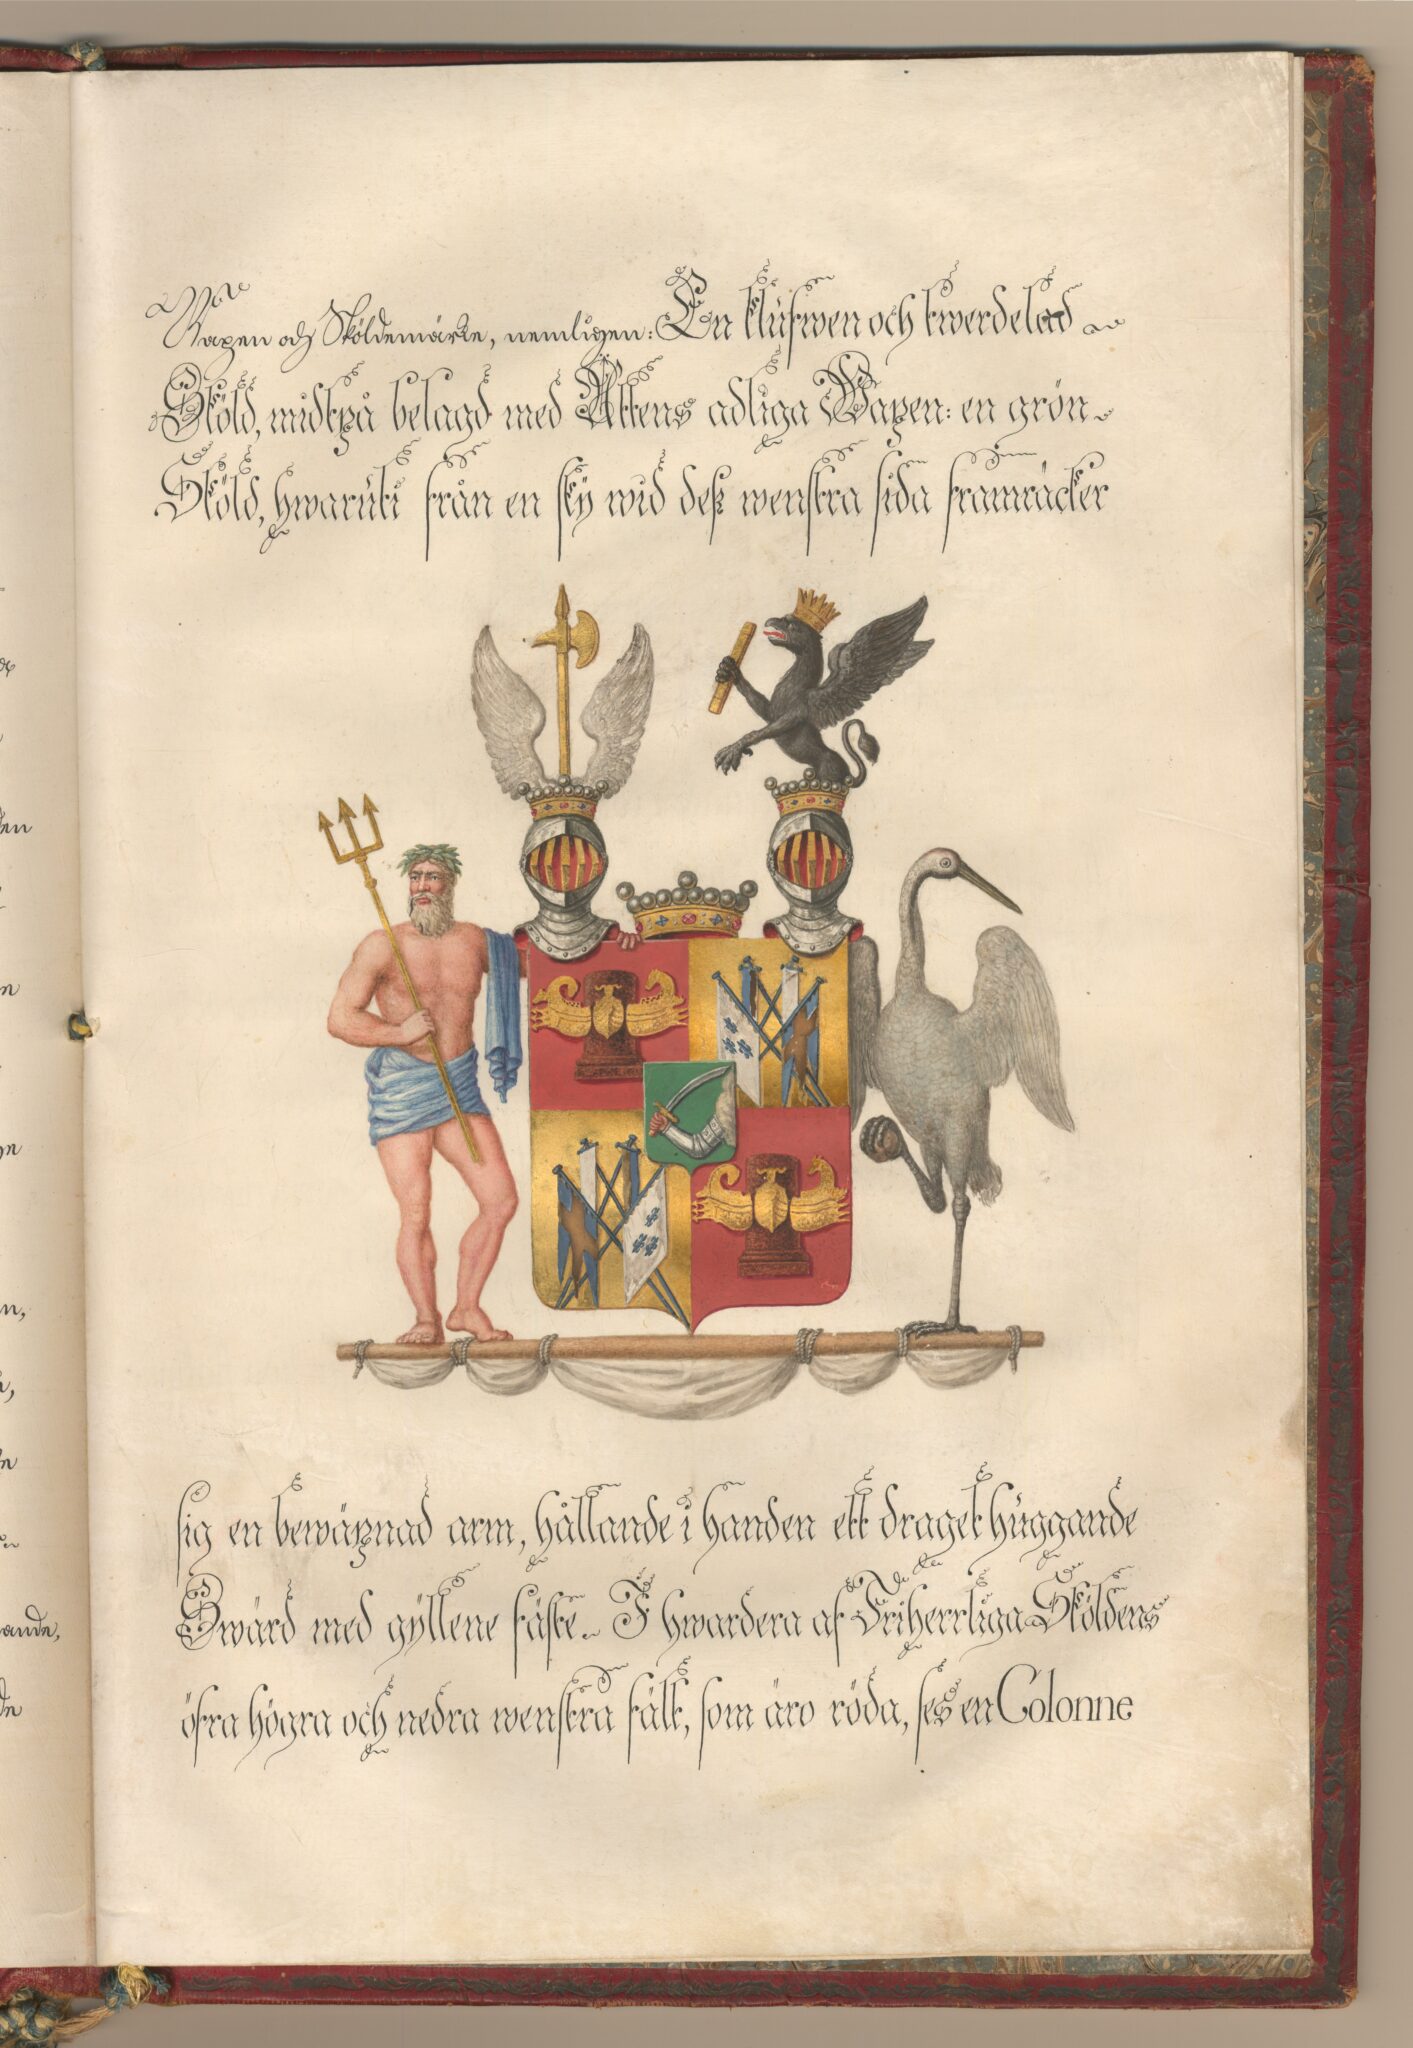 Wapen och Sköldemärke, nemligen: En klufwen och twerdelad
Sköld, midtpå belagd med Ättens adliga Wapen: en grön
Sköld, hwaruti från en sky wid dess wenstra sida framräcker
sig en bewäpnad arm, hållande i handen ett draget huggande
Swärd med gyllene fäste. I hwardera af Friherrliga Sköldens
öfra högra och nedra wenstra fält, som äro röda, ses en Colonne